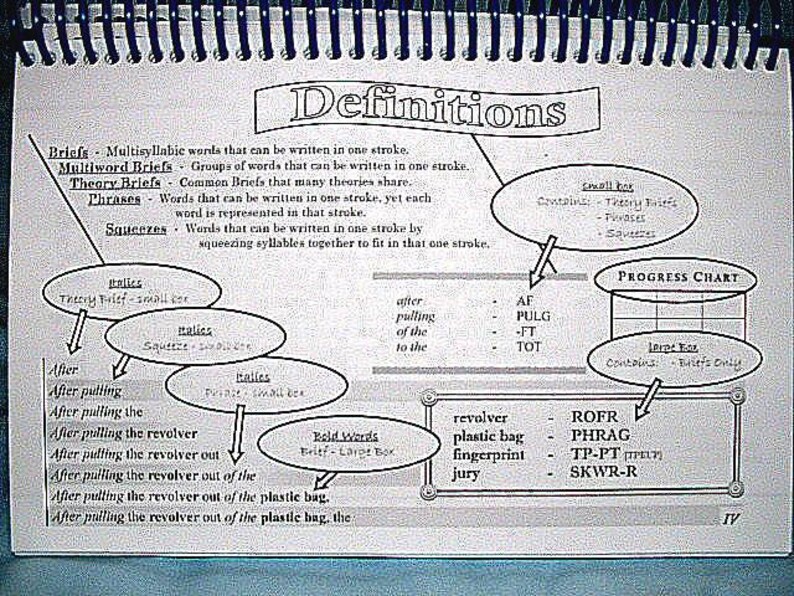 Definitions
Briefs - Multisyllabic words that can be written in one stroke.
Multiword Briefs - Groups of words that can be written in one stroke.
Theory Briefs - Common Briefs that many theories share.
Phrases - Words that can be written in one stroke, yet each
word is represented in that stroke.
Squeezes - Words that can be written in one stroke by
squeezing syllables together to fit in that one stroke.
small box
Contains: - Theory Briefs
- Phrases
- Squeezes
Italics
Theory Brief - small box
Italics
Squeeze - small box
Italics
Phrase - small box
Bold Words
Brief - Large Box
after - AF
pulling - PULG
of the - -FT
to the - TOT
PROGRESS CHART
Large Box
Contains: - Briefs Only
revolver - ROFR
plastic bag - PHRAG
fingerprint - TP-PT
jury - SKWR-R
After
After pulling
After pulling the
After pulling the revolver
After pulling the revolver out
After pulling the revolver out of the
After pulling the revolver out of the plastic bag,
After pulling the revolver out of the plastic bag, the
IV